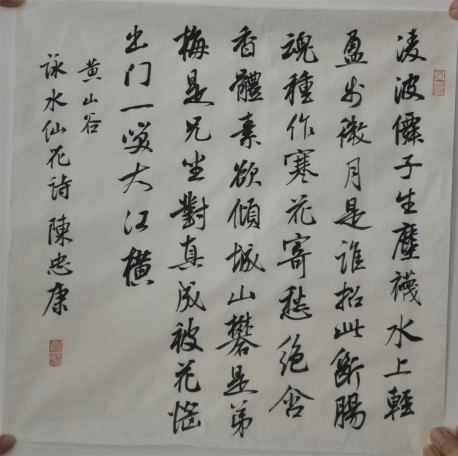 凌波僊子生塵襪水上輕
盈步微月是誰招此斷腸
魂種作寒花寄愁絕含
香體素欲傾城山礬是弟
梅是兄坐對真成被花惱
出门一笑大江橫
黄山谷
詠水仙花诗 陳忠康